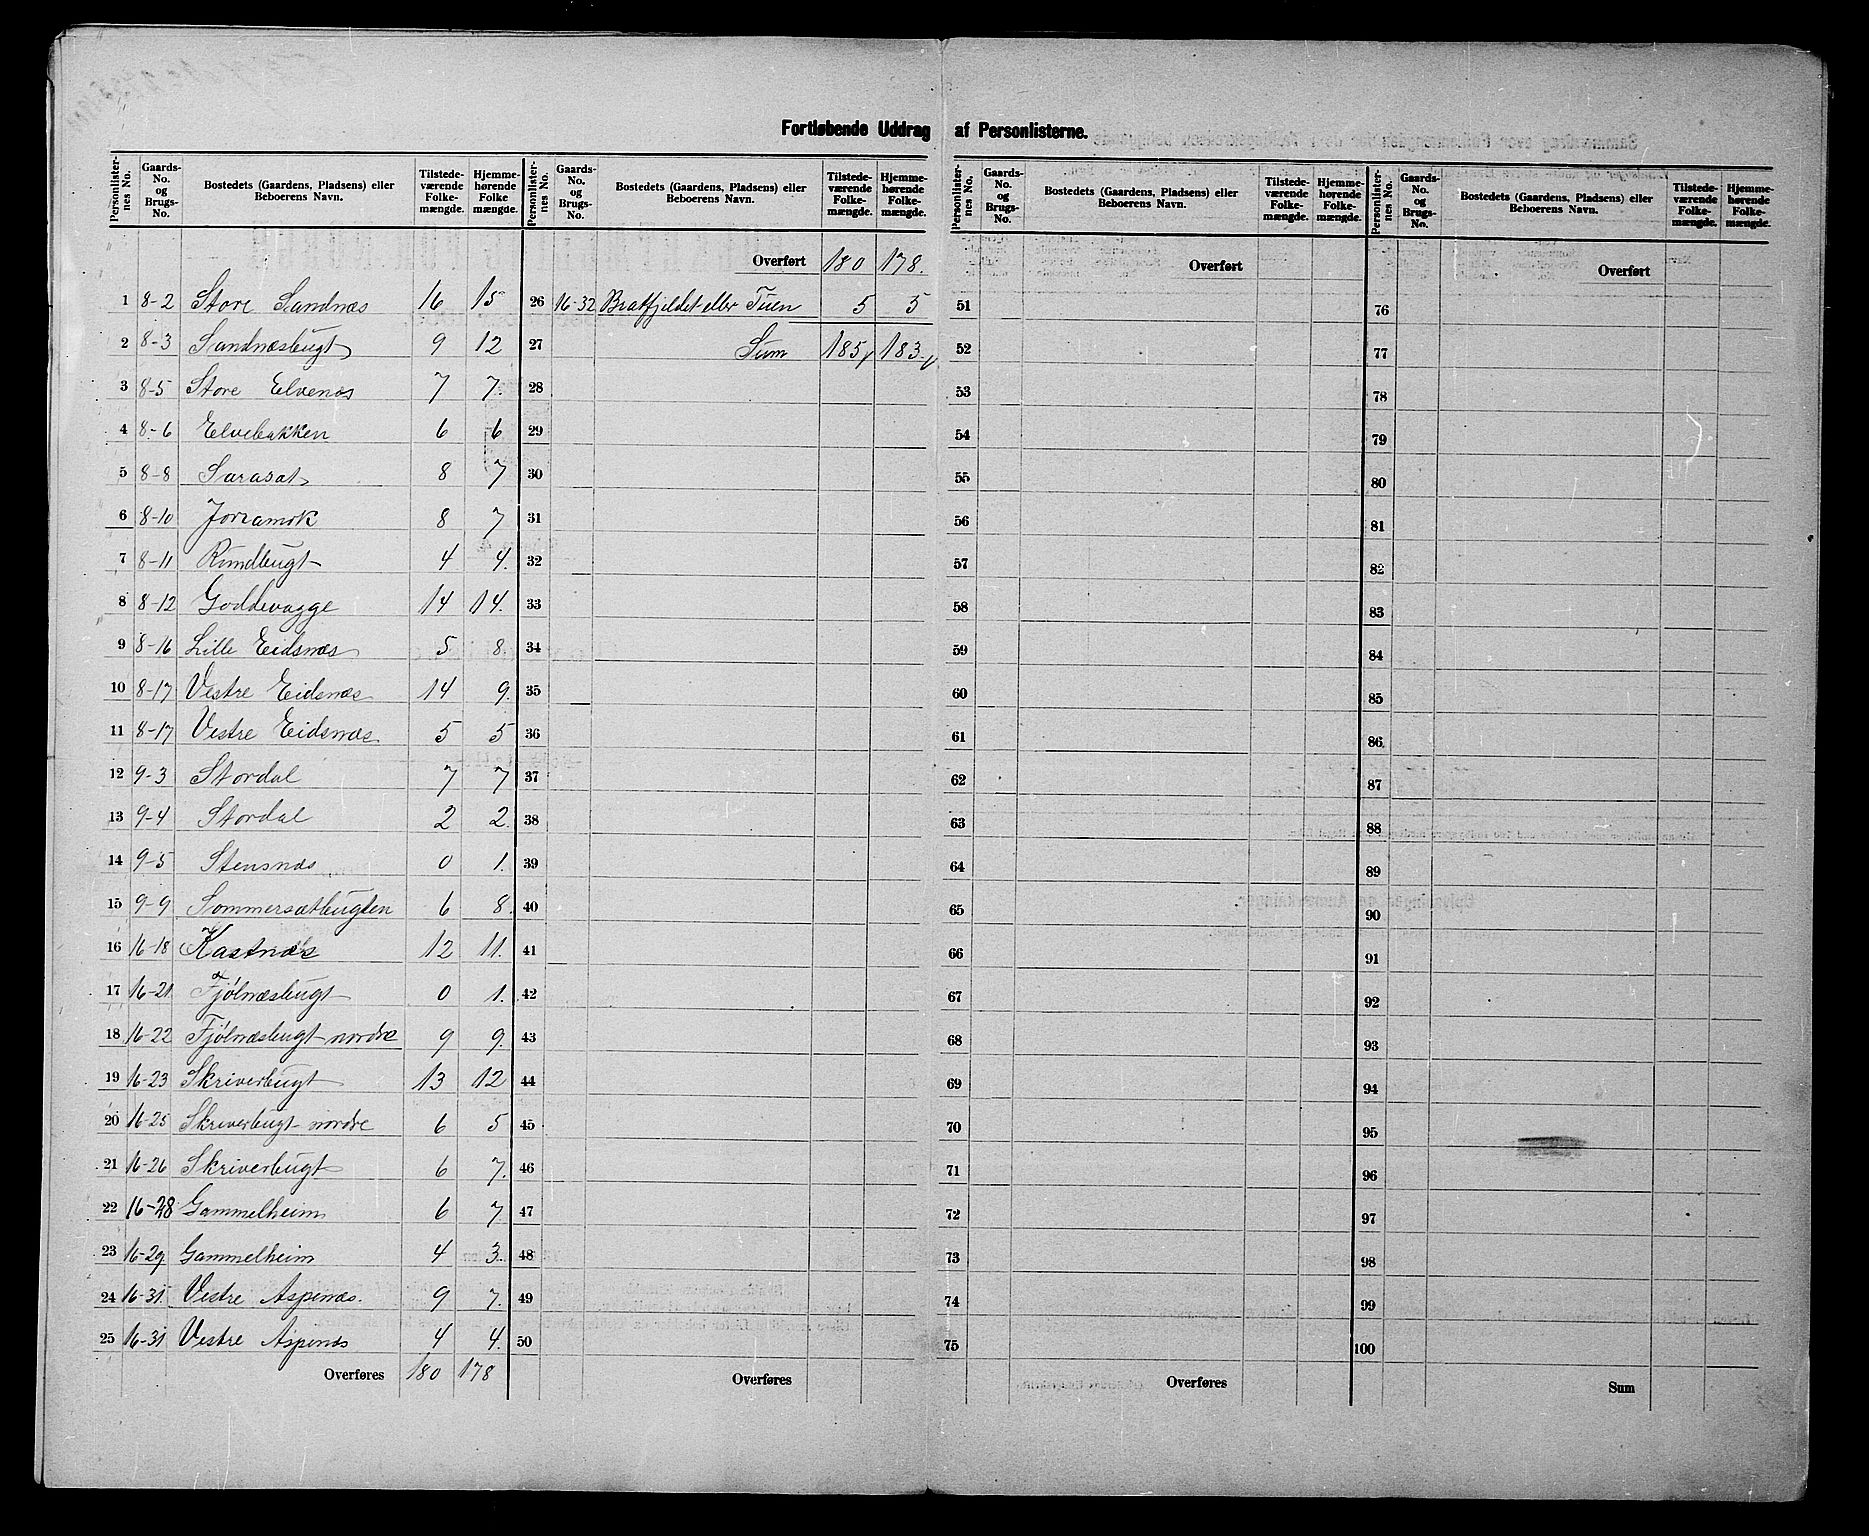 Fortløbende Uddrag af Personlisterne.
Personlisternes No. Gaards-No. og Brugs-No. Bostedets (Gaardens, Pladsens) eller Beboerens Navn. Tilstedeværende Folkemængde. Hjemmehørende Folkemængde.
1 8-2 Store Sandnæs 16 15
2 8-3 Sandnæsbugt 9 12
3 8-5 Store Elvenæs 7 7.
4 8-6 Elvebakken 6 6
5 8-8 Sarasat 8 7
6 8-10 Jorramok 8 7
7 8-11 Rundbugt 4 4.
8 8-12 Goddevagge 14 14.
9 8-16 Lille Eidsnæs 5 8.
10 8-17 Vestre Eidsnæs 14 9.
11 8-17 Vestre Eidsnæs 5 5
12 9-3 Stordal 7 7
13 9-4 Stordal 2 2.
14 9-5 Stensnæs 0 1.
15 9-9 Sommersætbugten 6 8.
16 16-18 Kastnæs 12 11.
17 16-21 Fjölnæsbugt 0 1.
18 16-22 Fjölnæsbugt nordre 9 9.
19 16-23 Skriverbugt 13 12
20 16-25 Skriverbugt nordre 6 5
21 16-26 Skriverbugt 6 7.
22 16-28 Gammelheim 6 7
23 16-29 Gammelheim 4 3.
24 16-31. Vestre Aspenæs. 9 7.
25 16-31 Vestre Aspenæs 4 4.
Overføres 180 178
Personlisternes No. Gaards-No. og Brugs-No. Bostedets (Gaardens, Pladsens) eller Beboerens Navn. Tilstedeværende Folkemængde. Hjemmehørende Folkemængde.
Overført 180 178.
26 16-32 Bratfjeldet eller Tuen 5 5
27 Sum 185 183
28
29
30
31
32
33
34
35
36
37
38
39
40
41
42
43
44
45
46
47
48
49
50
Overføres
Personlisternes No. Gaards-No. og Brugs-No. Bostedets (Gaardens, Pladsens) eller Beboerens Navn. Tilstedeværende Folkemængde. Hjemmehørende Folkemængde.
Overført
51
52
53
54
55
56
57
58
59
60
61
62
63
64
65
66
67
68
69
70
71
72
73
74
75
Overføres
Personlisternes No. Gaards-No. og Brugs-No. Bostedets (Gaardens, Pladsens) eller Beboerens Navn. Tilstedeværende Folkemængde. Hjemmehørende Folkemængde.
Overført
76
77
78
79
80
81
82
83
84
85
86
87
88
89
90
91
92
93
94
95
96
97
98
99
100
Sum